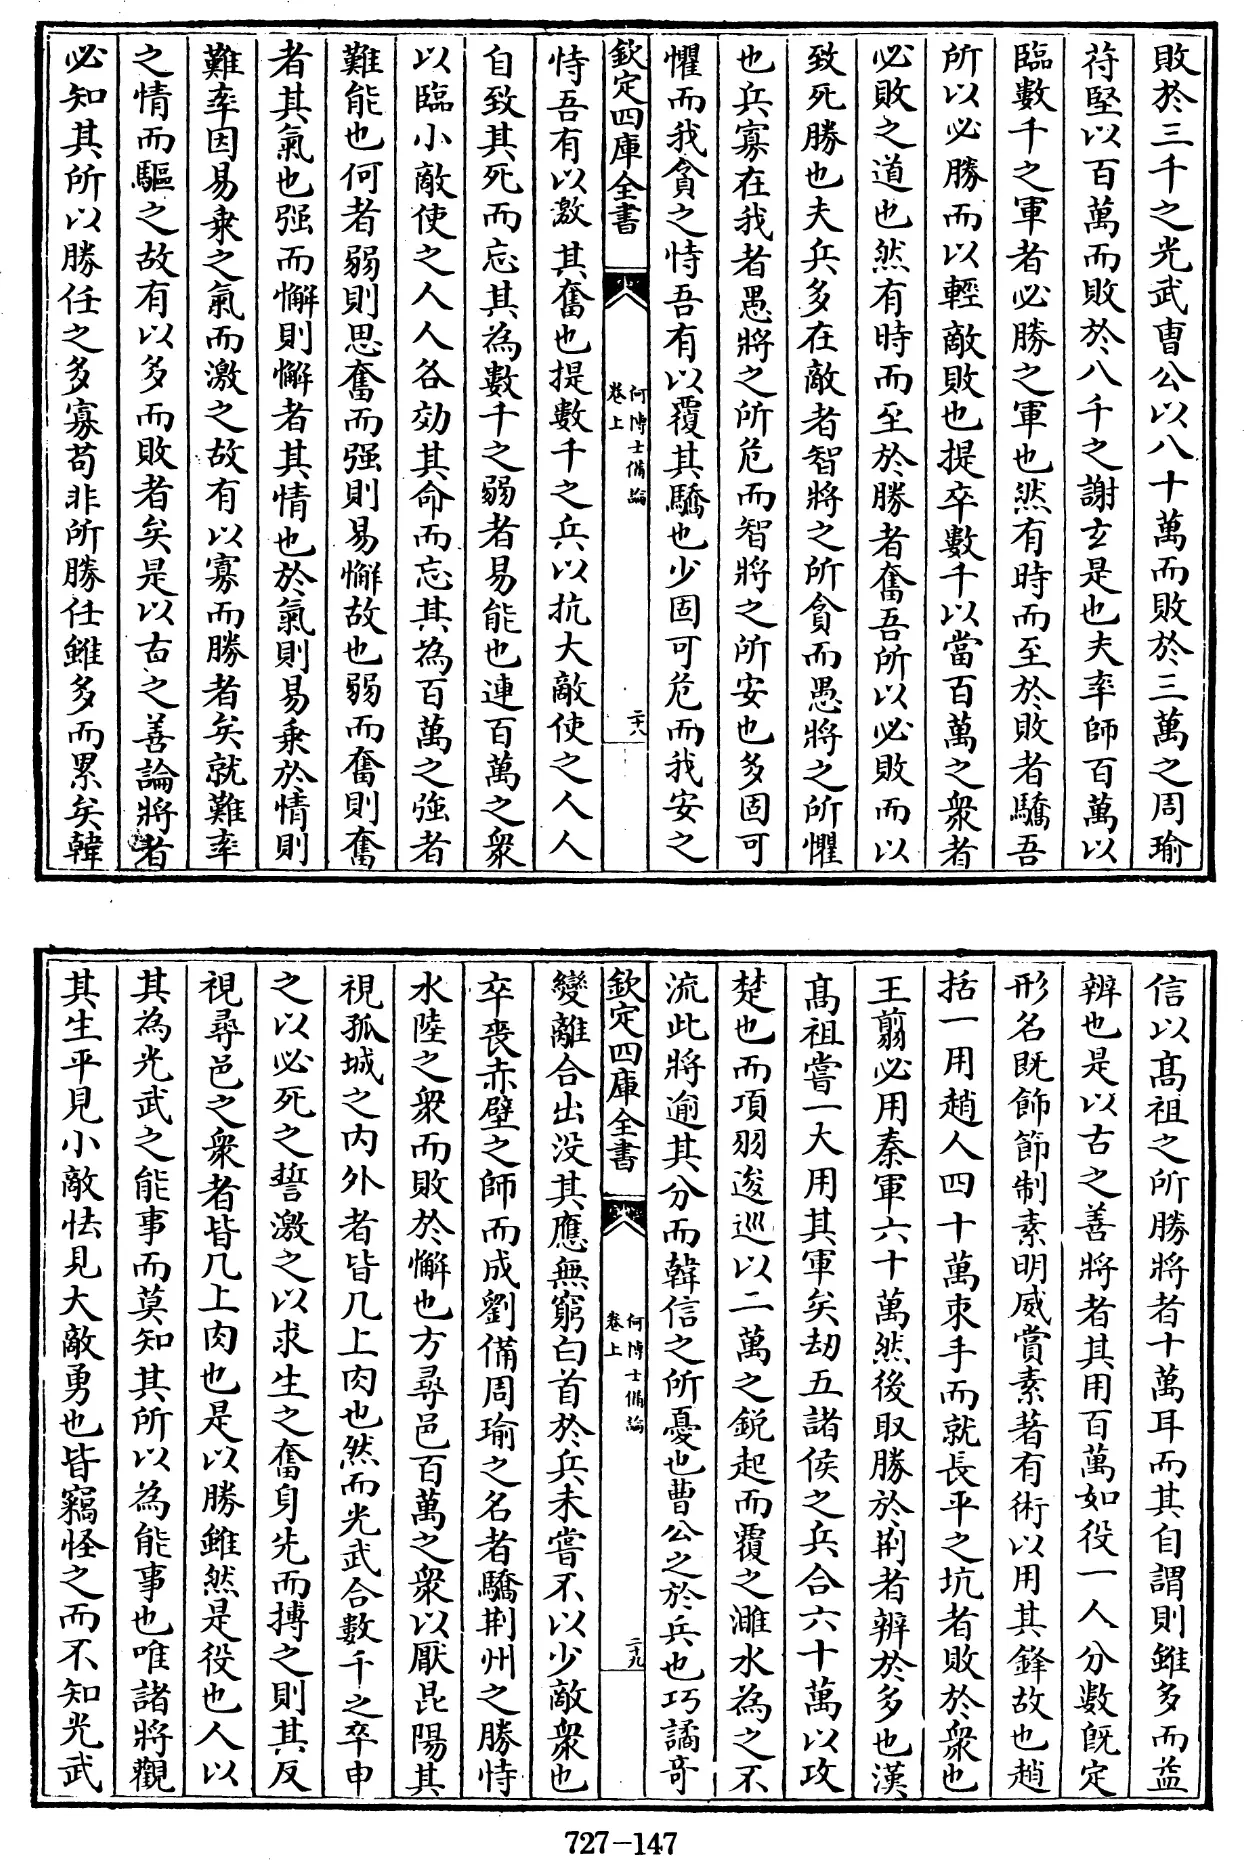 敗於三千之光武曹公以八十萬而敗於三萬之周瑜
苻堅以百萬而敗於八千之謝玄是也夫率師百萬以
臨數千之軍者必勝之軍也然有時而至於敗者驕吾
所以必勝而以輕敵敗也提卒數千以當百萬之衆者
必敗之道也然有時而至於勝者奮吾所以必敗而以
致死勝也夫兵多在敵者智將之所貪而愚將之所懼
也兵寡在我者愚將之所危而智將之所安也多固可
懼而我貪之恃吾有以覆其驕也少固可危而我安之
欽定四庫全書
何博士備論
卷上
二十八
恃吾有以激其奮也提數千之兵以抗大敵使之人人
自致其死而忘其為數千之弱者易能也連百萬之衆
以臨小敵使之人人各効其命而忘其為百萬之強者
難能也何者弱則思奮而强則易懈故也弱而奮則奮
者其氣也强而懈則懈者其情也於氣則易乗於情則
難率因易乗之氣而激之故有以寡而勝者矣就難率
之情而驅之故有以多而敗者矣是以古之善論將者
必知其所以勝任之多寡苟非所勝任雖多而累矣韓
信以髙祖之所勝將者十萬耳而其自謂則雖多而益
辨也是以古之善將者其用百萬如役一人分數既定
形名既飾節制素明威賞素著有術以用其鋒故也趙
括一用趙人四十萬束手而就長平之坑者敗於衆也
王翦必用秦軍六十萬然後取勝於荆者辨於多也漢
髙祖嘗一大用其軍矣刼五諸侯之兵合六十萬以攻
楚也而項羽逡巡以二萬之鋭起而覆之濉水為之不
流此將逾其分而韓信之所憂也曹公之於兵也巧譎竒
欽定四庫全書
何博士備論
卷上
二十九
變離合出没其應無窮白首於兵未嘗不以少敵衆也
卒喪赤壁之師而成劉備周瑜之名者驕荆州之勝恃
水陸之衆而敗於懈也方尋邑百萬之衆以厭昆陽其
視孤城之内外者皆几上肉也然而光武合數千之卒申
之以必死之誓激之以求生之奮身先而搏之則其反
視尋邑之衆者皆几上肉也是以勝雖然是役也人以
其為光武之能事而莫知其所以為能事也唯諸將觀
其生平見小敵怯見大敵勇也皆竊怪之而不知光武
727-147